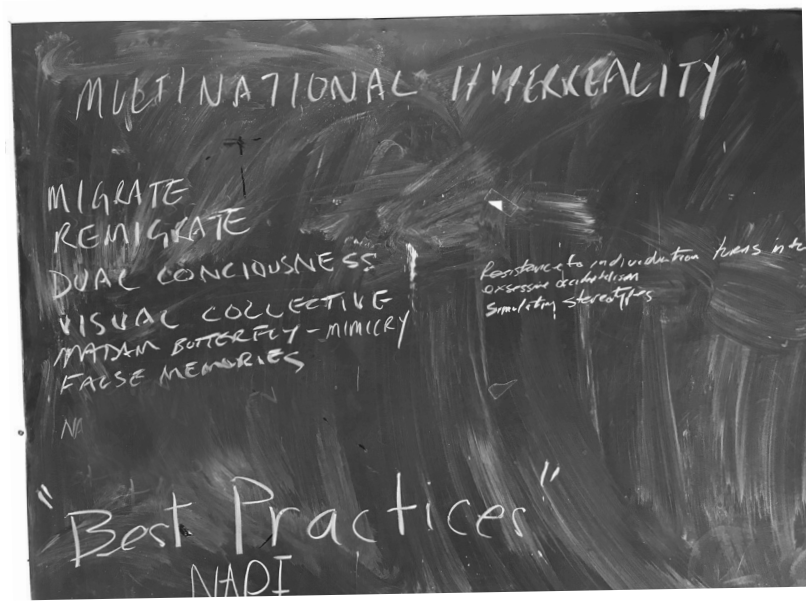 MULTINATIONAL HYPERREALITY
MIGRATE
REMIGRATE
DUAL CONCIOUSNESS
VISUAL COLLECTIVE
MADAM BUTTERFLY-MIMICRY
FALSE MEMORIES
Resistance to individuation turns into
simulating stereotypes
NA
"Best Practices"
NADI